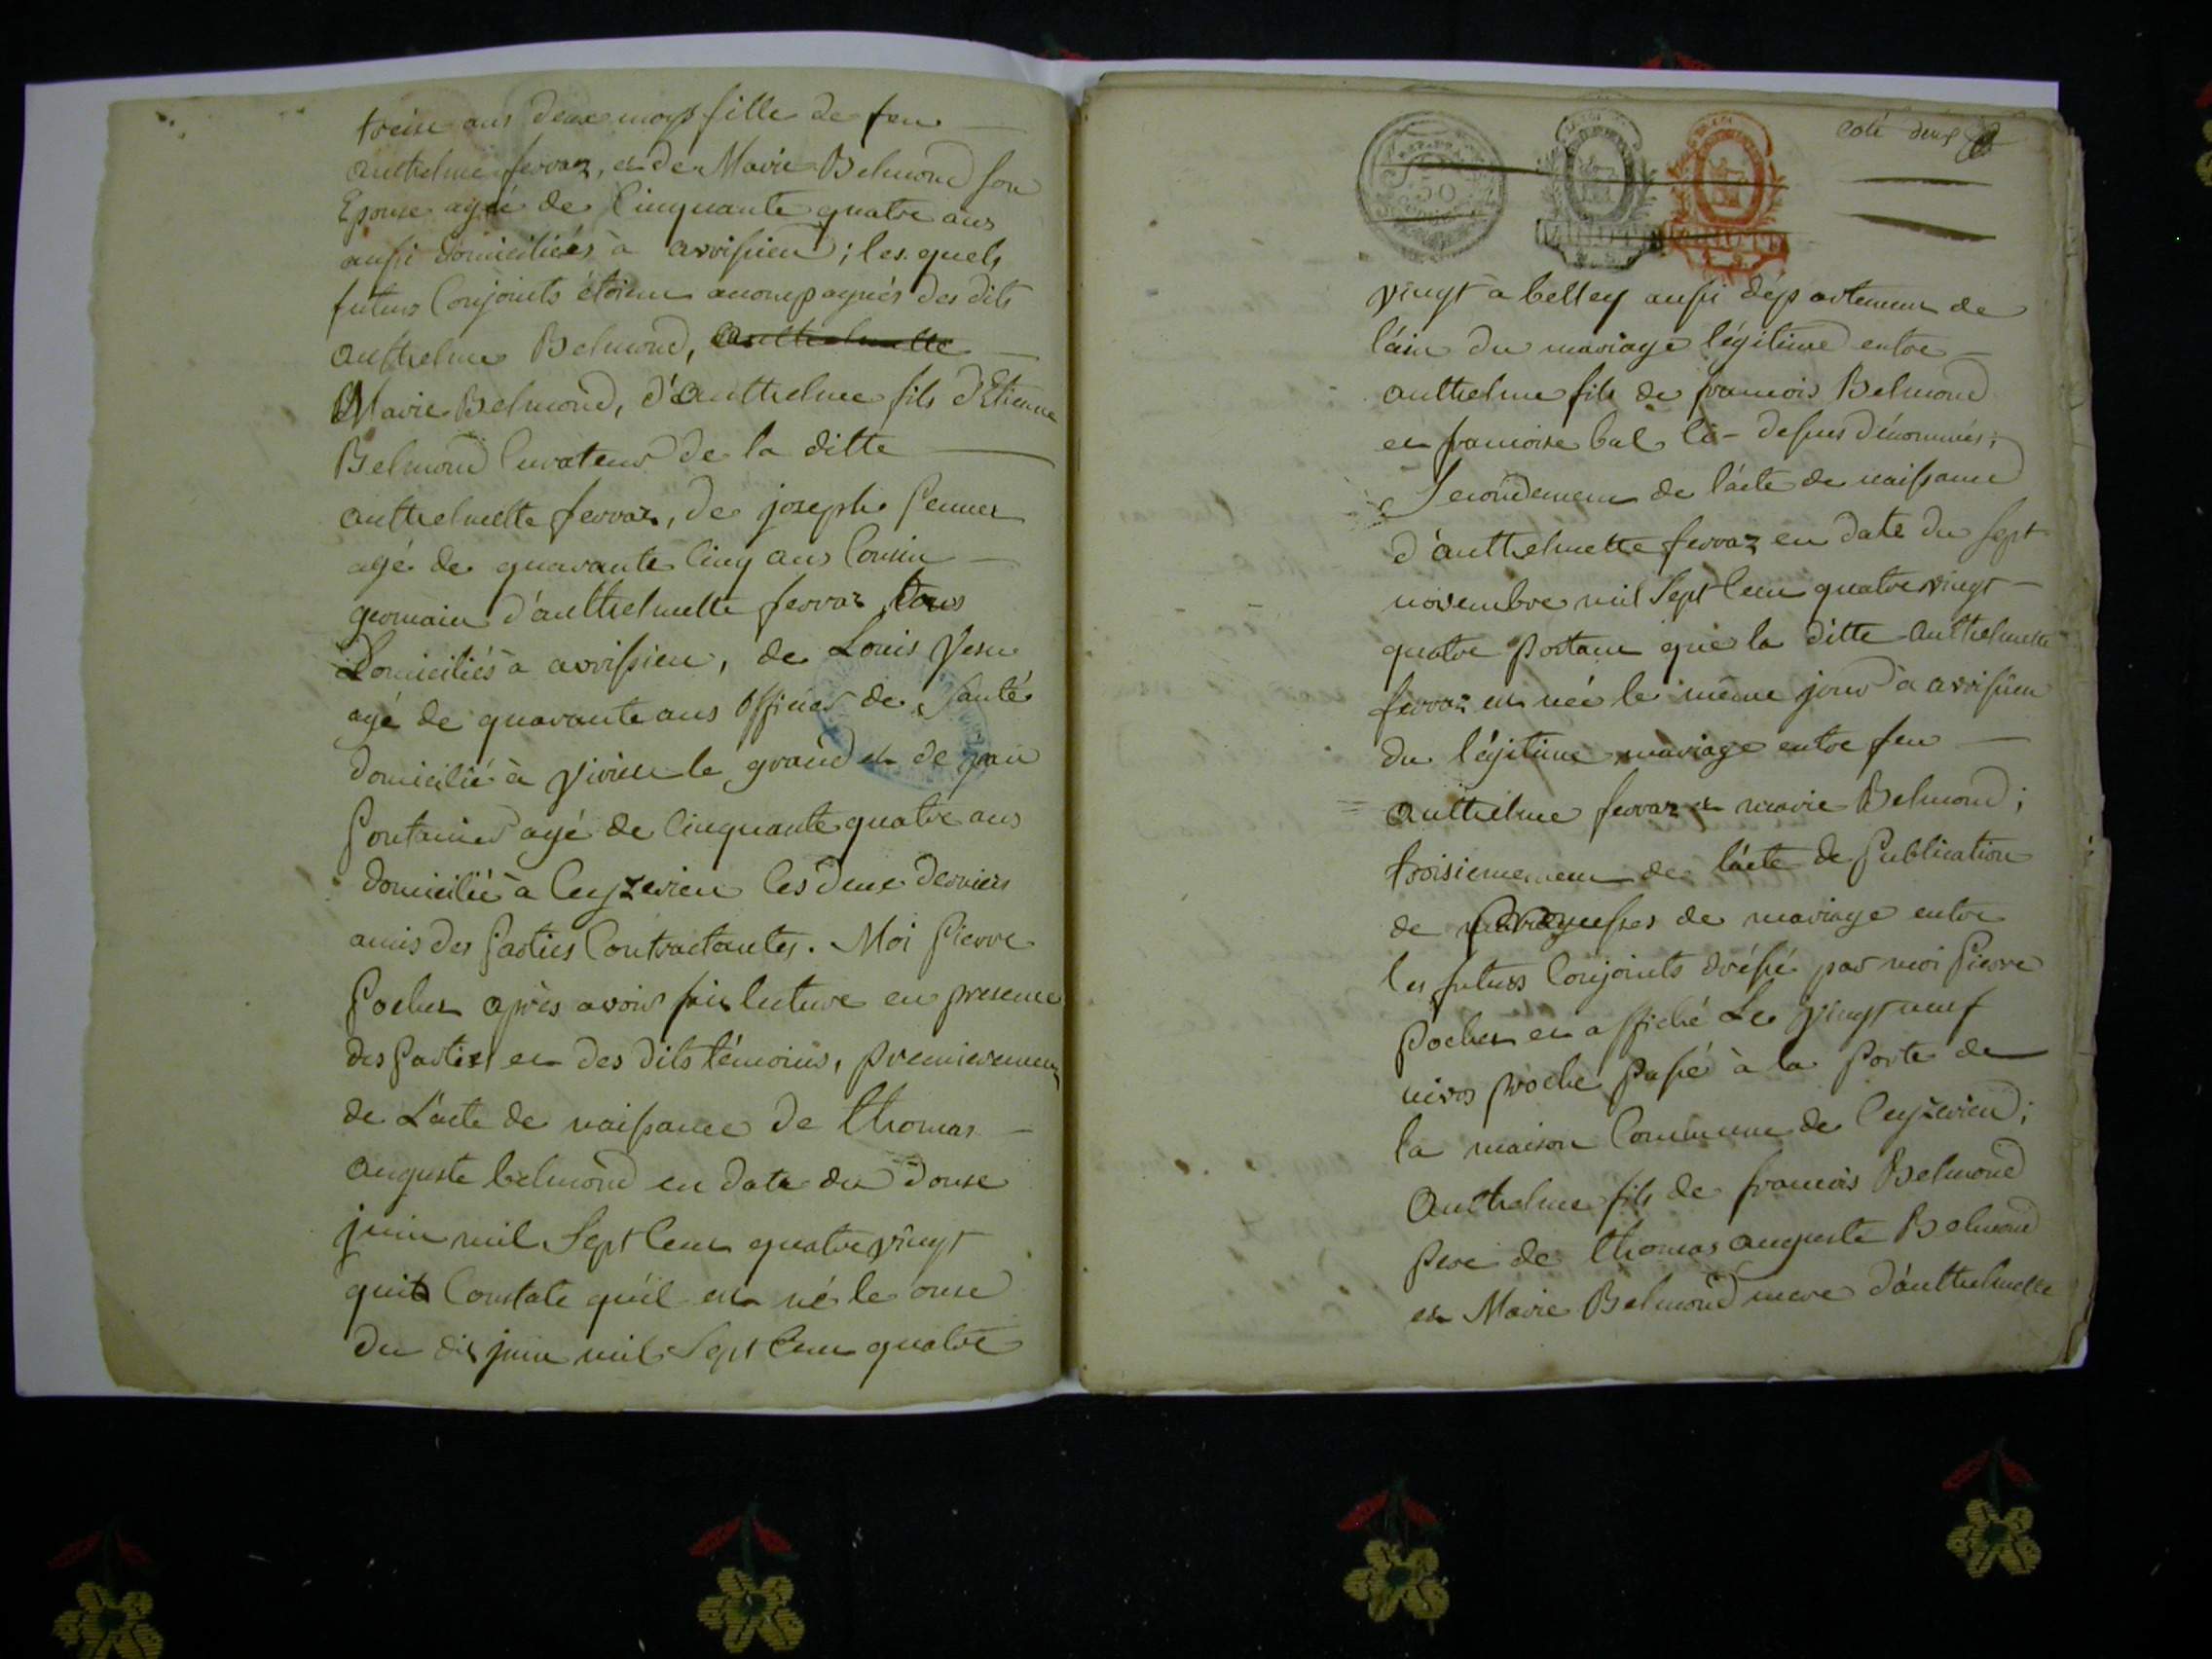 treize ans deux moys fille de feu
anthelme ferraz, et de Marie Belmond son
Epouse agée de Cinquante quatre ans
aussi domiciliées à arvissieu; les quels
futurs Conjoints étoient accompagnés des dits
anthelme Belmond, Anthelmette
Marie Belmond, d'anthelme fils d'Etienne
Belmond Curateur de la ditte
anthelmette ferraz, de joseph
agé de quarante Cinq ans Cousin
germain d'anthelmette ferraz tous
Domiciliés à arvissieu, de Louis
agé de quarante ans officier de Santé
domicilié à virieu le grand et de
agé de Cinquante quatre ans
domicilié à Ceyzerieu les deux derniers
amis des Parties Contractantes. Moi Pierre
Pochet après avoir fait lecture en presence
des Parties et des dits témoins, premierement
de L'acte de naissance de thomas
auguste belmond en date du douse
juin mil Sept Cent quatre vingt
qui Constate qu'il est né le onse
du dit juin mil Sept Cent quatre
coté deux
50
vingt à belley aussi département de
l'ain du mariage légitime entre
anthelme fils de francois Belmond
et francoise bal Ci-dessus dénommés;
Secondement de l'acte de naissance
d'anthelmette ferraz en date du Sept
novembre mil Sept Cent quatre vingt
quatre Portant que la ditte anthelmette
ferraz est née le même jour à arvissieu
du légitime mariage entre feu
anthelme ferraz et marie Belmond;
troisiemement de l'acte de Publication
de promesses de mariage entre
les futurs Conjoints dréssé par moi Pierre
Pochet et affiché Le vingt neuf
nivos proche passé à la Porte de
la maison Commune de Ceyzerieu;
Anthelme fils de francois Belmond
Pere de thomas auguste Belmond
et Marie Belmond mere d'anthelmette